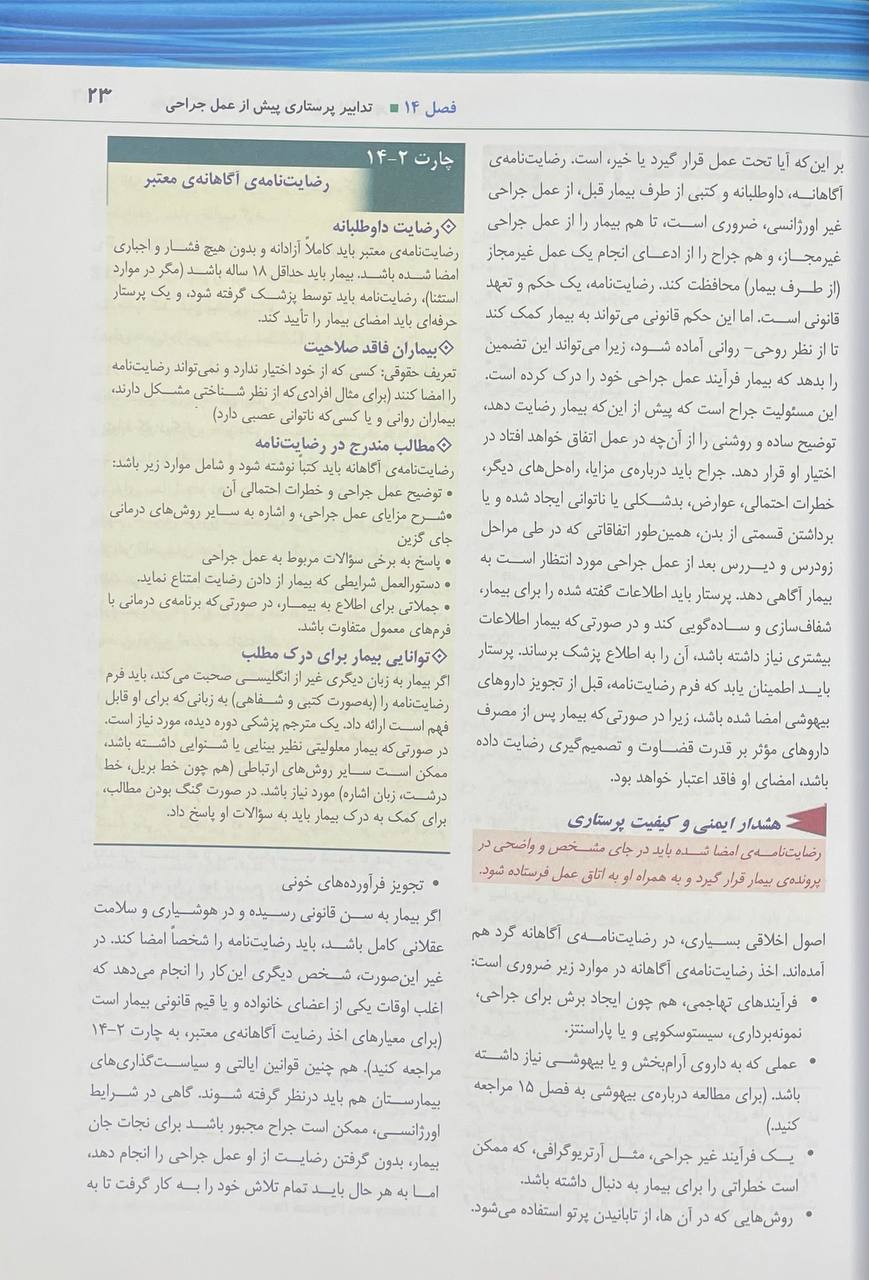 فصل ۱۴ ■ تدابیر پرستاری پیش از عمل جراحی
۲۳
بر این‌که آیا تحت عمل قرار گیرد یا خیر، است. رضایت‌نامه‌ی
آگاهانه، داوطلبانه و کتبی از طرف بیمار قبل، از عمل جراحی
غیر اورژانسی، ضروری است، تا هم بیمار را از عمل جراحی
غیرمجاز، و هم جراح را از ادعای انجام یک عمل غیرمجاز
(از طرف بیمار) محافظت کند. رضایت‌نامه، یک حکم و تعهد
قانونی است. اما این حکم قانونی می‌تواند به بیمار کمک کند
تا از نظر روحی- روانی آماده شود، زیرا می‌تواند این تضمین
را بدهد که بیمار فرآیند عمل جراحی خود را درک کرده است.
این مسئولیت جراح است که پیش از این‌که بیمار رضایت دهد،
توضیح ساده و روشنی را از آن‌چه در عمل اتفاق خواهد افتاد در
اختیار او قرار دهد. جراح باید درباره‌ی مزایا، راه‌حل‌های دیگر،
خطرات احتمالی، عوارض، بدشکلی یا ناتوانی ایجاد شده و یا
برداشتن قسمتی از بدن، همین‌طور اتفاقاتی که در طی مراحل
زودرس و دیررس بعد از عمل جراحی مورد انتظار است به
بیمار آگاهی دهد. پرستار باید اطلاعات گفته شده را برای بیمار،
شفاف‌سازی و ساده‌گویی کند و در صورتی‌که بیمار اطلاعات
بیشتری نیاز داشته باشد، آن را به اطلاع پزشک برساند. پرستار
باید اطمینان یابد که فرم رضایت‌نامه، قبل از تجویز داروهای
بیهوشی امضا شده باشد، زیرا در صورتی‌که بیمار پس از مصرف
داروهای مؤثر بر قدرت قضاوت و تصمیم‌گیری رضایت داده
باشد، امضای او فاقد اعتبار خواهد بود.
هشدار ایمنی و کیفیت پرستاری
رضایت‌نامه‌ی امضا شده باید در جای مشخص و واضحی در
پرونده‌ی بیمار قرار گیرد و به همراه او به اتاق عمل فرستاده شود.
اصول اخلاقی بسیاری، در رضایت‌نامه‌ی آگاهانه گرد هم
آمده‌اند. اخذ رضایت‌نامه‌ی آگاهانه در موارد زیر ضروری است:
• فرآیندهای تهاجمی، هم چون ایجاد برش برای جراحی،
نمونه‌برداری، سیستوسکوپی و یا پاراسنتز.
• عملی که به داروی آرام‌بخش و یا بیهوشی نیاز داشته
باشد. (برای مطالعه درباره‌ی بیهوشی به فصل ۱۵ مراجعه
کنید.)
• یک فرآیند غیر جراحی، مثل آرتریوگرافی، که ممکن
است خطراتی را برای بیمار به دنبال داشته باشد.
• روش‌هایی که در آن ها، از تابانیدن پرتو استفاده می‌شود.
چارت ۲-۱۴
رضایت‌نامه‌ی آگاهانه‌ی معتبر
❖ رضایت داوطلبانه
رضایت‌نامه‌ی معتبر باید کاملاً آزادانه و بدون هیچ فشار و اجباری
امضا شده باشد. بیمار باید حداقل ۱۸ ساله باشد (مگر در موارد
استثنا)، رضایت‌نامه باید توسط پزشک گرفته شود، و یک پرستار
حرفه‌ای باید امضای بیمار را تأیید کند.
❖ بیماران فاقد صلاحیت
تعریف حقوقی: کسی که از خود اختیار ندارد و نمی‌تواند رضایت‌نامه
را امضا کنند (برای مثال افرادی‌که از نظر شناختی مشکل دارند،
بیماران روانی و یا کسی‌که ناتوانی عصبی دارد)
❖ مطالب مندرج در رضایت‌نامه
رضایت‌نامه‌ی آگاهانه باید کتباً نوشته شود و شامل موارد زیر باشد:
• توضیح عمل جراحی و خطرات احتمالی آن
• شرح مزایای عمل جراحی، و اشاره به سایر روش‌های درمانی
جای گزین
• پاسخ به برخی سؤالات مربوط به عمل جراحی
• دستورالعمل شرایطی که بیمار از دادن رضایت امتناع نماید.
• جملاتی برای اطلاع به بیمار، در صورتی‌که برنامه‌ی درمانی با
فرم‌های معمول متفاوت باشد.
❖ توانایی بیمار برای درک مطلب
اگر بیمار به زبان دیگری غیر از انگلیسی صحبت می‌کند، باید فرم
رضایت‌نامه را (به‌صورت کتبی و شفاهی) به زبانی‌که برای او قابل
فهم است ارائه داد. یک مترجم پزشکی دوره دیده، مورد نیاز است.
در صورتی‌که بیمار معلولیتی نظیر بینایی یا شنوایی داشته باشد،
ممکن است سایر روش‌های ارتباطی (هم چون خط بریل، خط
درشت، زبان اشاره) مورد نیاز باشد. در صورت گنگ بودن مطالب،
برای کمک به درک بیمار باید به سؤالات او پاسخ داد.
• تجویز فرآورده‌های خونی
اگر بیمار به سن قانونی رسیده و در هوشیاری و سلامت
عقلانی کامل باشد، باید رضایت‌نامه را شخصاً امضا کند. در
غیر این‌صورت، شخص دیگری این‌کار را انجام می‌دهد که
اغلب اوقات یکی از اعضای خانواده و یا قیم قانونی بیمار است
(برای معیارهای اخذ رضایت آگاهانه‌ی معتبر، به چارت ۲-۱۴
مراجعه کنید). هم چنین قوانین ایالتی و سیاست‌گذاری‌های
بیمارستان هم باید درنظر گرفته شوند. گاهی در شرایط
اورژانسی، ممکن است جراح مجبور باشد برای نجات جان
بیمار، بدون گرفتن رضایت از او عمل جراحی را انجام دهد،
اما به هر حال باید تمام تلاش خود را به کار گرفت تا به